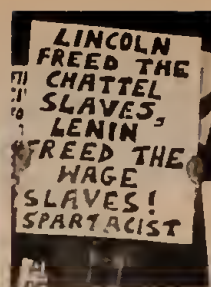 LINCOLN
FREED THE
CHATTEL
SLAVES,
LENIN
FREED THE
WAGE
SLAVES!
SPARTACIST